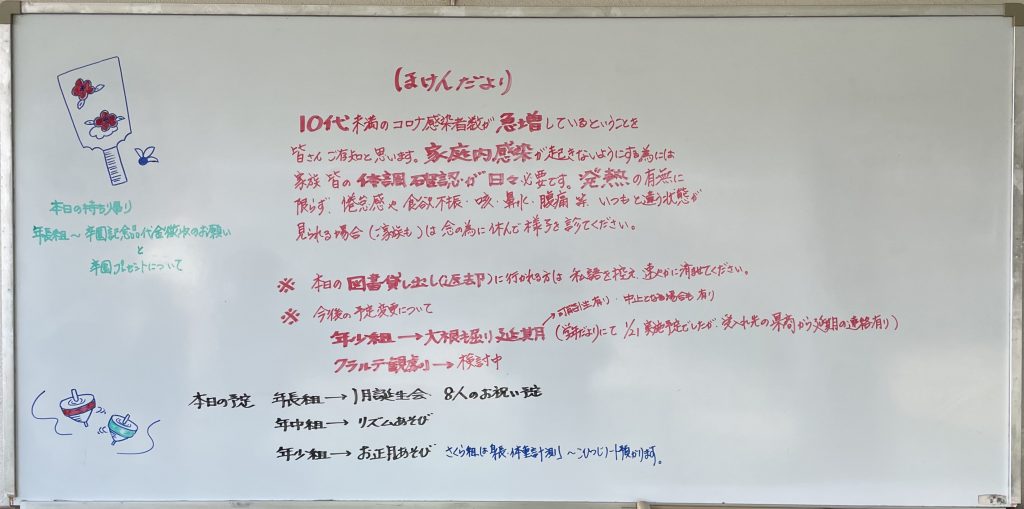 (ほけんだより)
10代未満のコロナ感染者数が急増しているということを
皆さんご存知と思います。家庭内感染が起きないようにする為には
家族皆の体調確認が日々必要です。発熱の有無に
限らず、倦怠感や食欲不振・咳・鼻水・腹痛等、いつもと違う状態が
見られる場合(ご家族も)は念の為に休んで様子を診てください。
本日の持ち帰り
年長組〜卒園記念品代金徴収のお願い
と
卒園プレゼントについて
※ 本日の図書貸し出し(返却)に行かれる方は私語を控え、速やかに済ませてください。
※ 今後の予定変更について
可能性有り・中止となる場合も有り
年少組→大根掘り延期 (学年だよりにて 1/21実施予定でしたが、受入れ先の異荷から延期の連絡有り)
クラルテ観劇→検討中
本日の予定 年長組→1月誕生会 8人のお祝い予定
年中組→リズムあそび
年少組→お正月あそび さくら組は身長・体重計測 〜こひつじノート預かります。